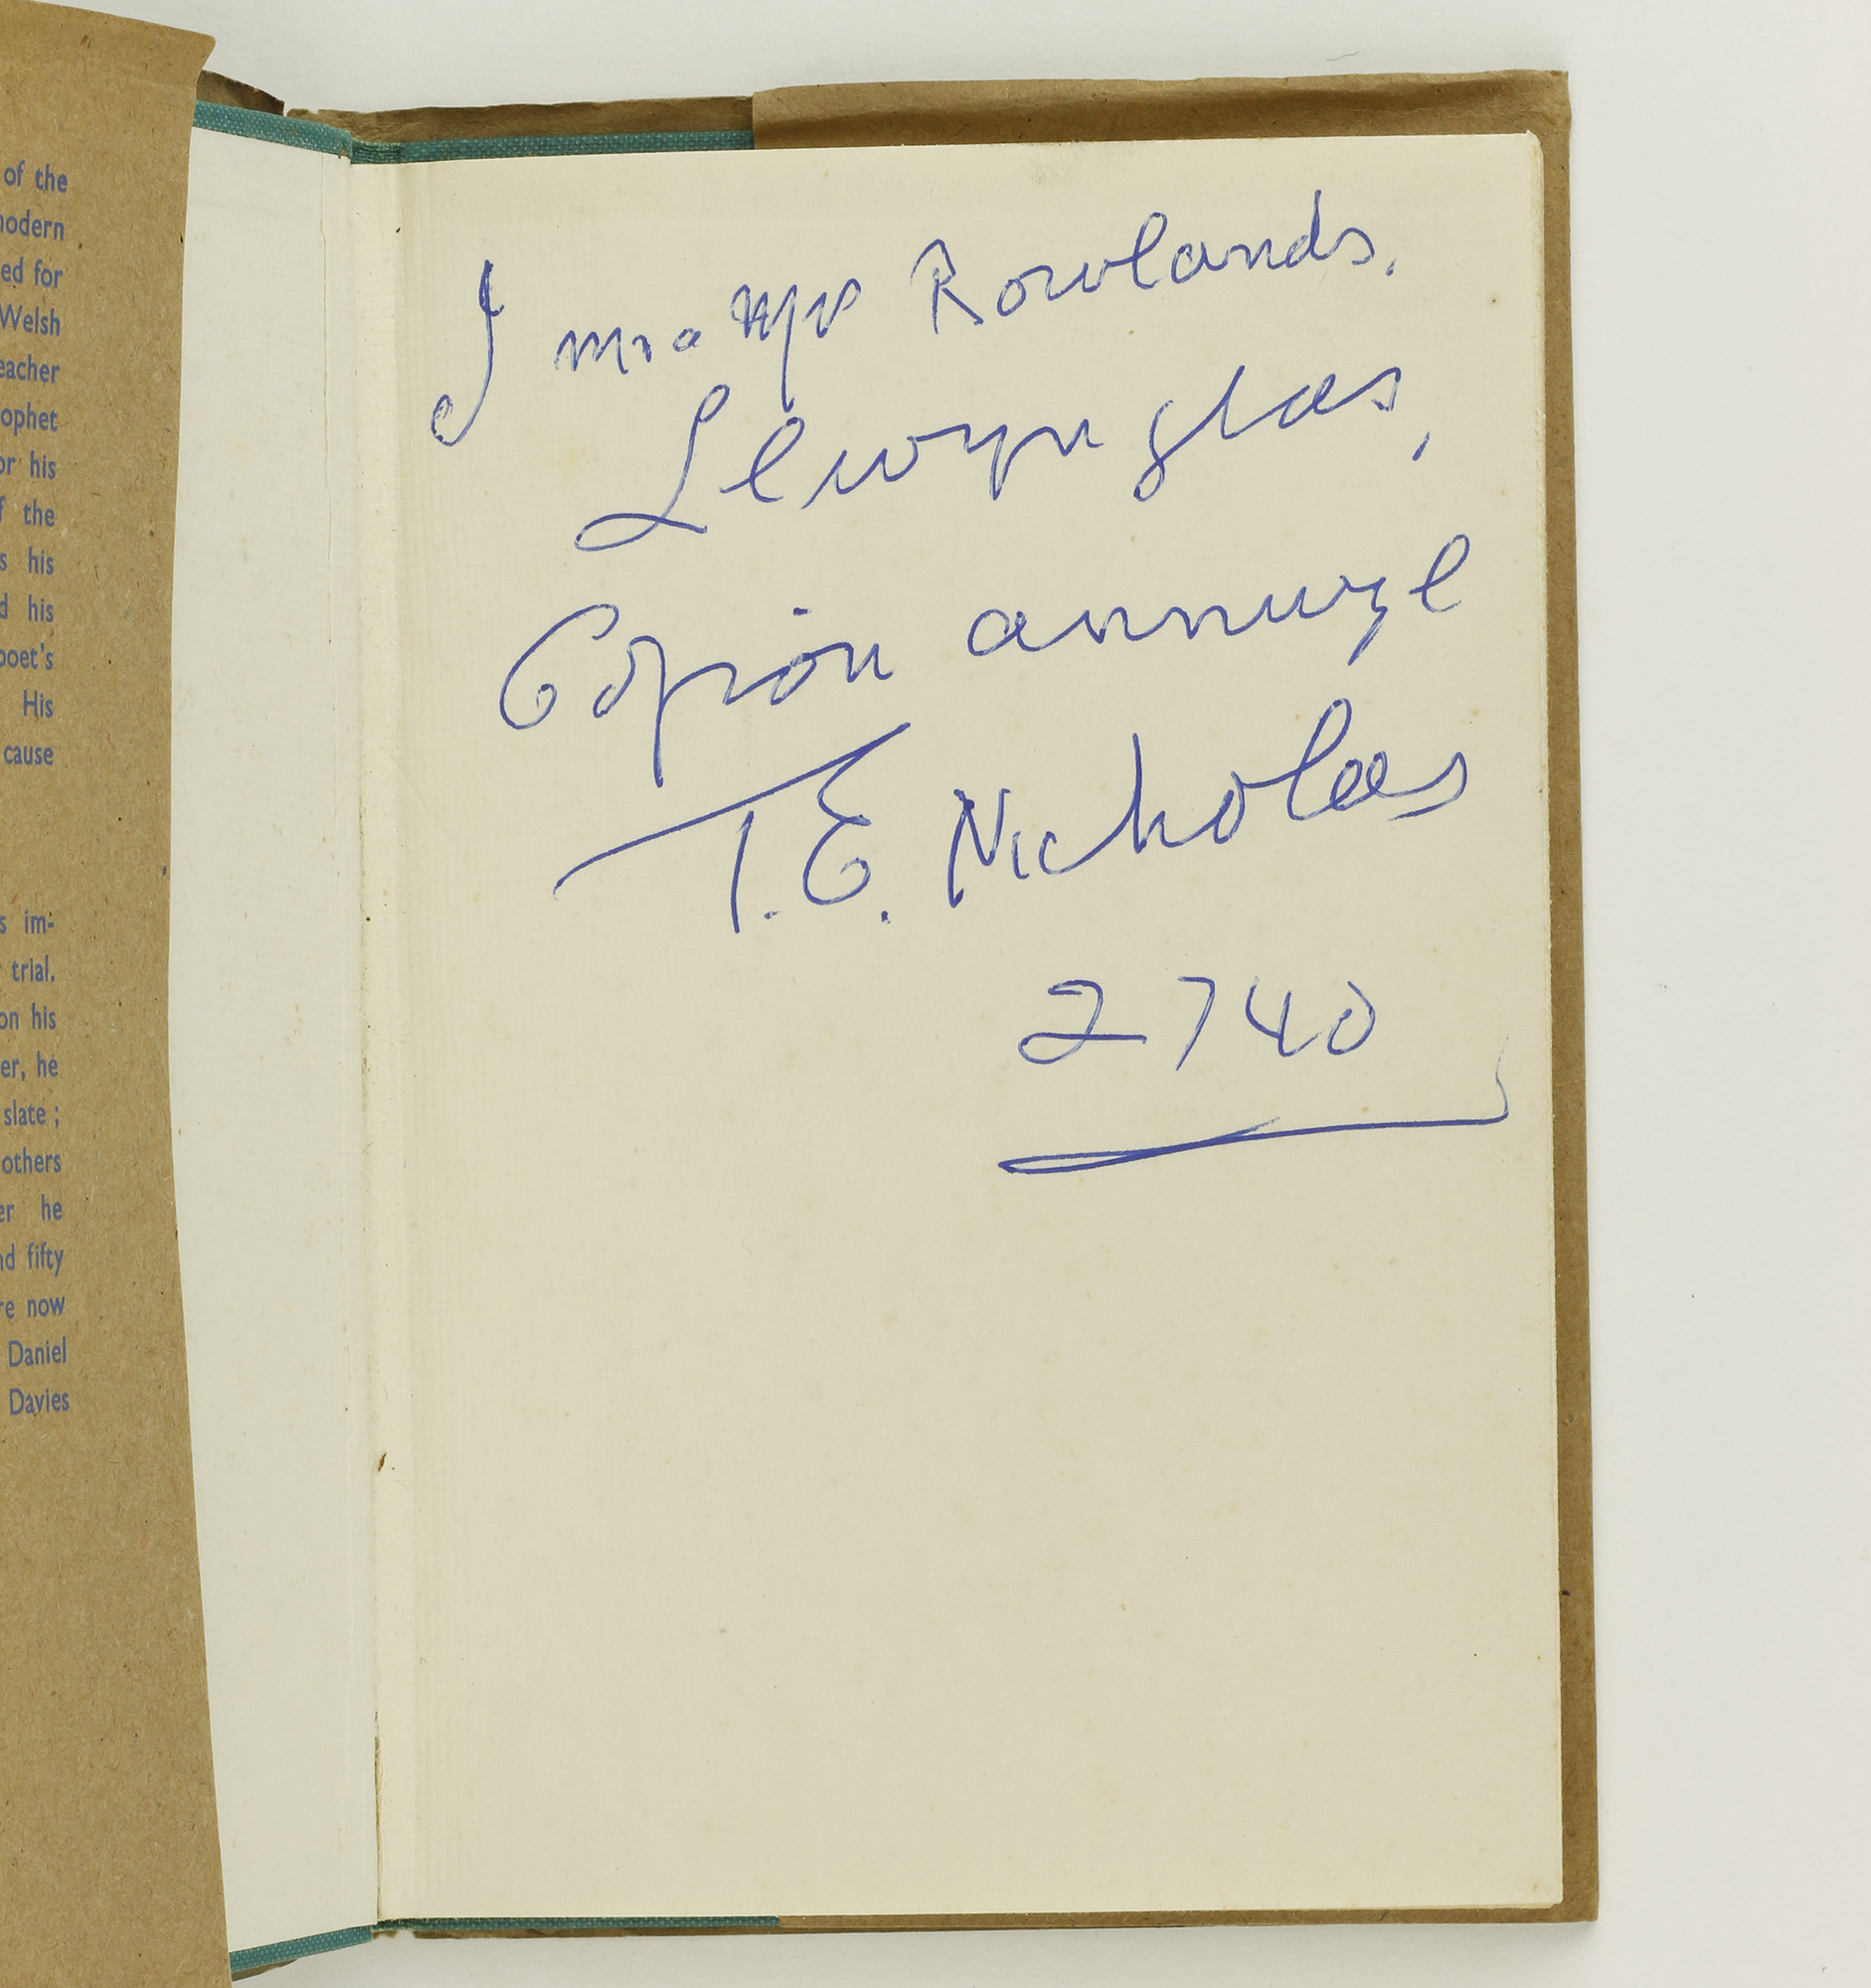 of the
modern
ed for
Welsh
eacher
ophet
or his
f the
s his
d his
poet's
His
cause
s im-
trial.
on his
er, he
slate ;
others
er he
nd fifty
re now
Daniel
Davies
I Mr a Mrs Rowlands.
Llwynglas,
Cofion annwyl
T. E. Nicholas
2740